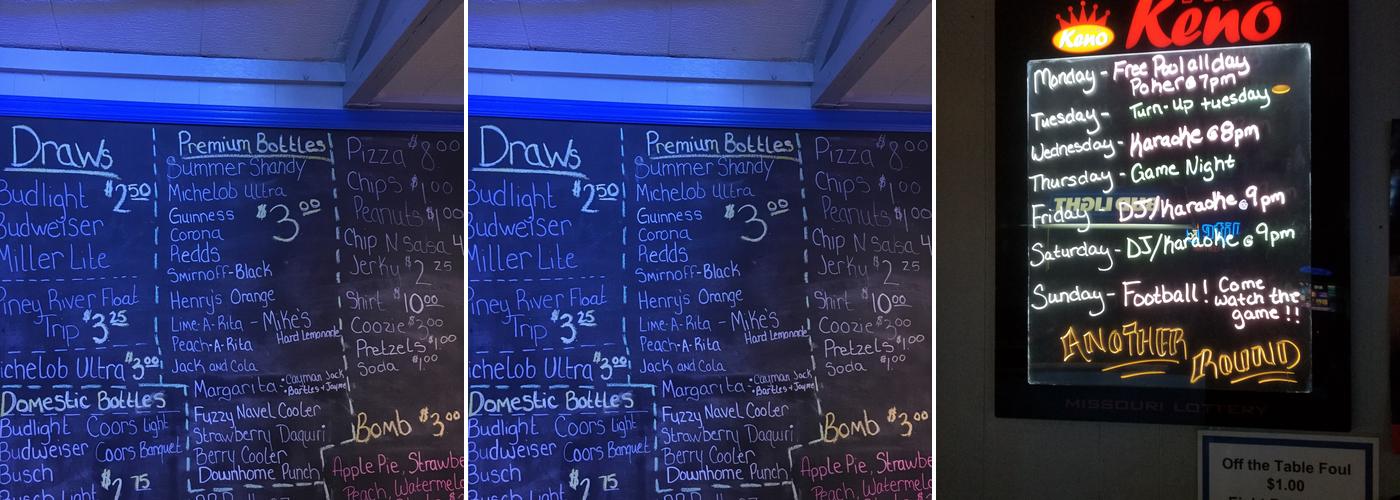 Draws
Budlight $2.50
Budweiser
Miller Lite
Piney River Float
Trip $3.25
Michelob Ultra $3.00
Domestic Bottles
Budlight Coors Light
Budweiser Coors Banquet
Busch
Busch Light $2.75
Premium Bottles
Summer Shandy
Michelob Ultra
Guinness $3.00
Corona
Redds
Smirnoff-Black
Henry's Orange
Lime-A-Rita - Mike's
Hard Lemonade
Peach-A-Rita
Jack and Cola
Margarita: Cayman Jack
Bartles + Jayme
Fuzzy Navel Cooler
Strawberry Daquiri
Berry Cooler
Downhome Punch
Pizza $8.00
Chips $1.00
Peanuts $1.00
Chip N Salsa 4
Jerky $2.25
Shirt $10.00
Coozie $3.00
Pretzels $1.00
Soda $1.00
Bomb $3.00
Apple Pie, Strawbe
Peach, Waterme
Draws
Budlight $2.50
Budweiser
Miller Lite
Piney River Float
Trip $3.25
Michelob Ultra $3.00
Domestic Bottles
Budlight Coors Light
Budweiser Coors Banquet
Busch
Busch Light $2.75
Premium Bottles
Summer Shandy
Michelob Ultra
Guinness $3.00
Corona
Redds
Smirnoff-Black
Henry's Orange
Lime-A-Rita - Mike's
Hard Lemonade
Peach-A-Rita
Jack and Cola
Margarita: Cayman Jack
Bartles + Jayme
Fuzzy Navel Cooler
Strawberry Daquiri
Berry Cooler
Downhome Punch
Pizza $8.00
Chips $1.00
Peanuts $1.00
Chip N Salsa 4
Jerky $2.25
Shirt $10.00
Coozie $3.00
Pretzels $1.00
Soda $1.00
Bomb $3.00
Apple Pie, Strawbe
Peach, Watermel
Keno Keno
Monday - Free Pool all day
Poker @ 7pm
Tuesday - Turn-Up tuesday
Wednesday - Karaoke @ 8pm
Thursday - Game Night
Friday - DJ/Karaoke @ 9pm
Saturday - DJ/Karaoke @ 9pm
Sunday - Football! Come
watch the
game!!
ANOTHER
ROUND
MISSOURI LOTTERY
Off the Table Foul
$1.00